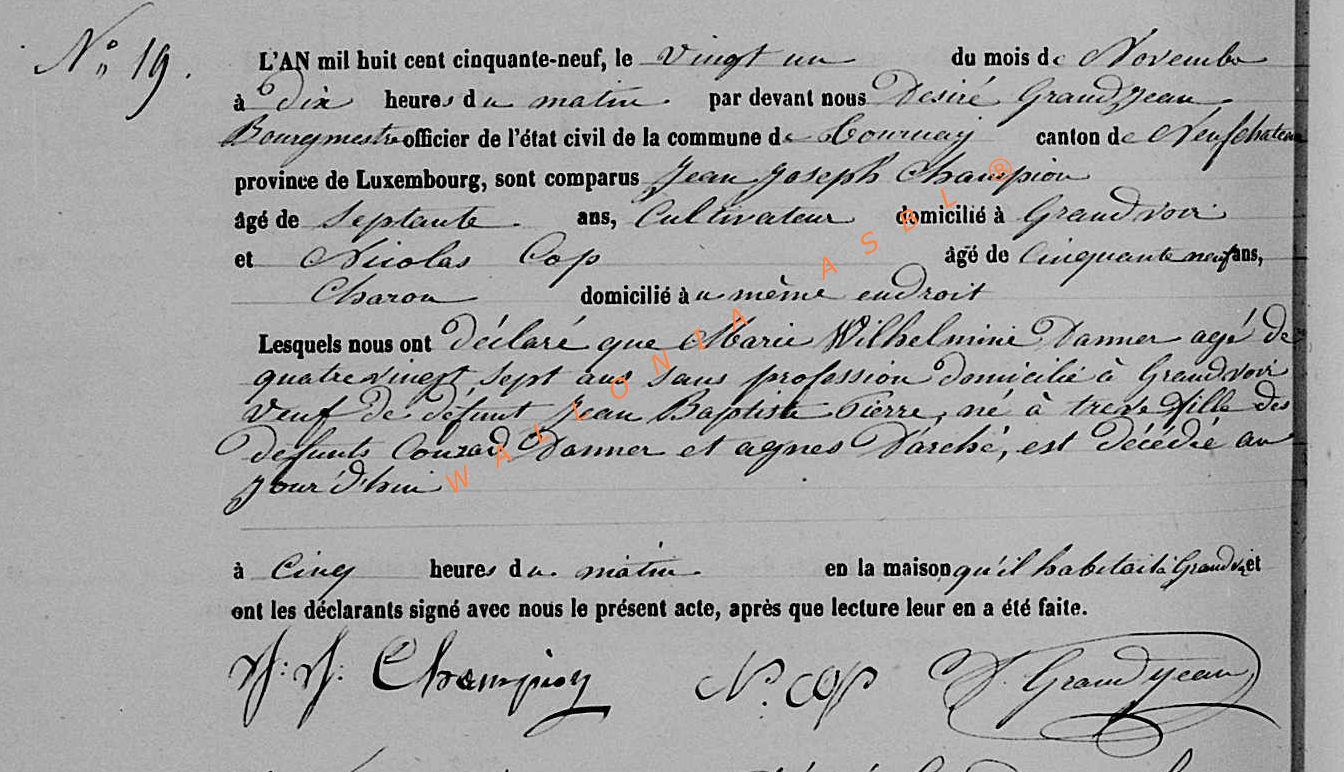 N° 19.
L'AN mil huit cent cinquante-neuf, le vingt un du mois de Novembre
à Dix heures du matin par devant nous Desiré Grandjean
Bourgmestre officier de l'état civil de la commune de Tournay canton de Neufchateau
province de Luxembourg, sont comparus Jean Joseph Champion
âgé de Septante ans, Cultivateur domicilié à Grandvoir
et Nicolas Cop âgé de Cinquante neuf ans,
Charon domicilié au même endroit
Lesquels nous ont déclaré que Marie Wilhelmine Danner agé de
quatre vingt sept ans sans profession domicilié à Grandvoir
veuf de défunt Jean Baptiste Pierre, né à treve fille des
défunts Conrad Danner et agnes Darché, est décédé au
jour d'hui
à Cinq heures du matin en la maison qu'il habitait à Grandvoir et
ont les déclarants signé avec nous le présent acte, après que lecture leur en a été faite.
J: J: Champion N. Cop D. Grandjean
WALLONIA ASBL ®